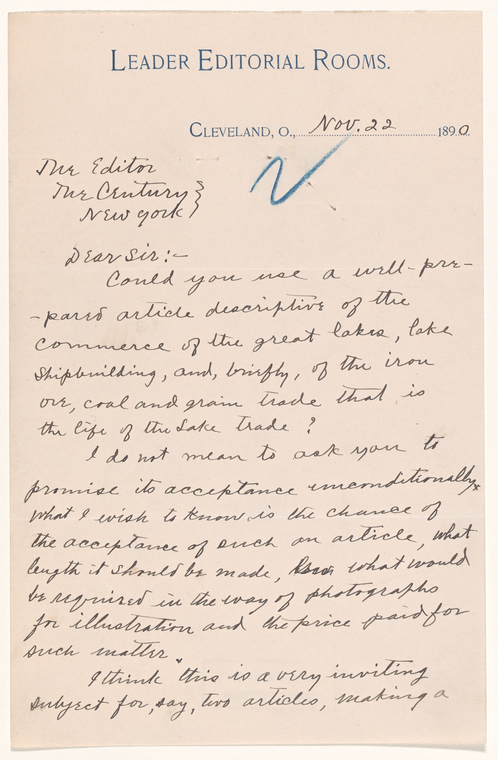 LEADER EDITORIAL ROOMS.
CLEVELAND, O., Nov. 22 1890.
The Editor
The Century
New York
Dear Sir:-
Could you use a well-pre-
-pared article descriptive of the
commerce of the great lakes, lake
shipbuilding, and, briefly, of the iron
ore, coal and grain trade that is
the life of the Lake trade?
I do not mean to ask you to
promise its acceptance unconditionally.
What I wish to know is the chance of
the acceptance of such an article, what
length it should be made, what would
be required in the way of photographs
for illustration and the price paid for
such matter
I think this is a very inviting
subject for, say, two articles, making a